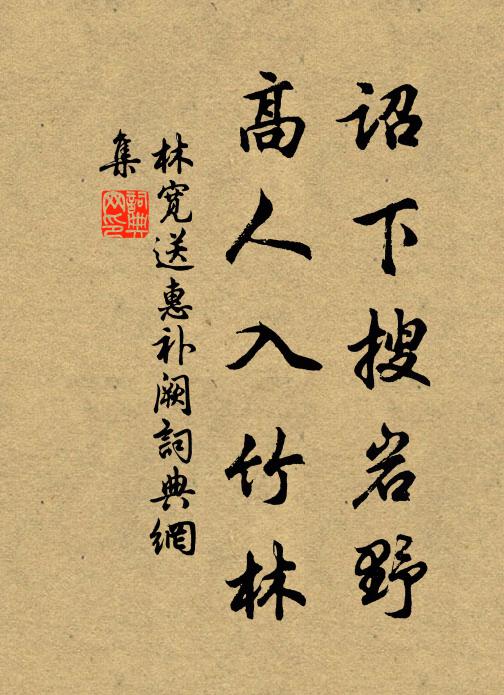 诏下搜岩野
高人入竹林
林宽送惠补阙詞典網
集
詞典
网印